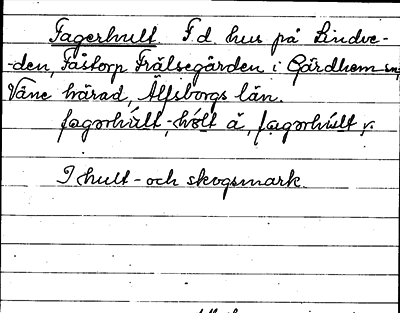 Fagerhult F.d. hus på Lindve-
-den, Fåstorp Frälsegården i Gärdhem sn,
Väne härad, Älfsborgs län.
fagərhúlt, -hólt ä, fagərhúlt y.
I hult- och skogsmark.